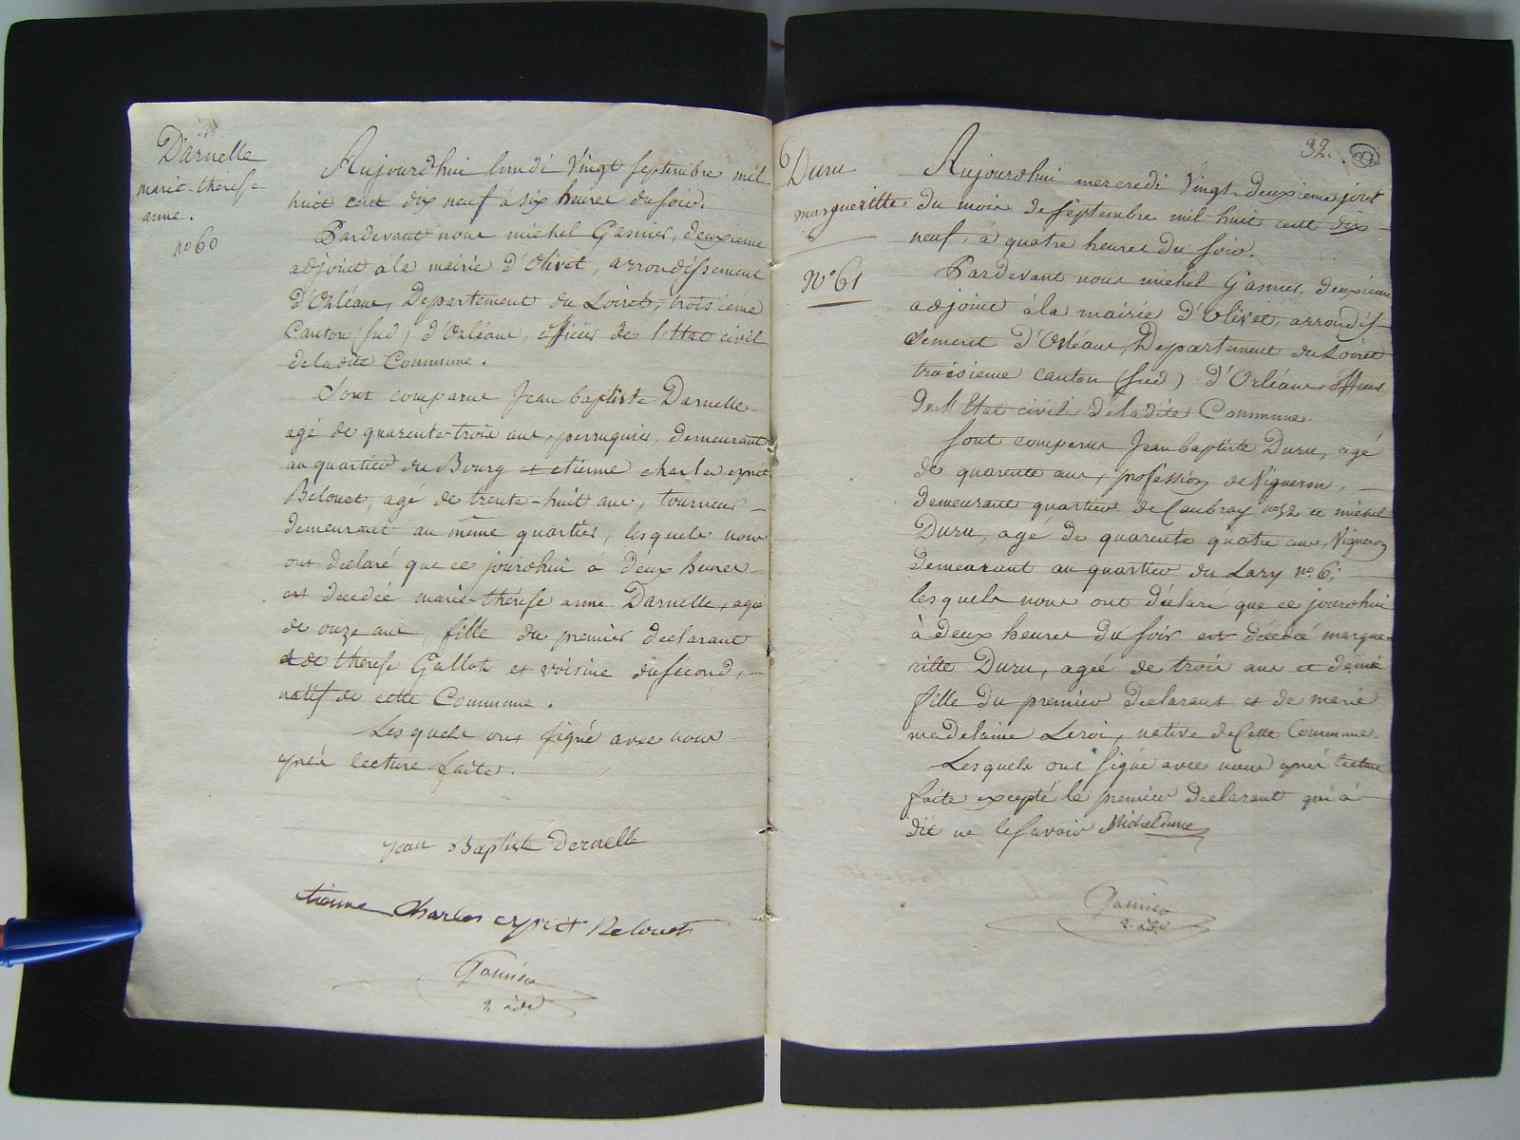 Darnelle
marie-thérese-
anne.
no 60
Aujourdhui lundi Vingt septembre mil
huit cent dix neuf à six heures du soir.
Pardevant nous michel Gasnier, deuxieme
adjoint à la mairie d'Olivet, arrondissement
d'Orléans, Departement du Loiret, troisieme
Canton (sud) d'Orléans, officier de l'Etat civil
de la dite Commune.
Sont comparus Jean baptiste Darnelle
agé de quarente-trois ans, perruquier, demeurant
au quartier du Bourg et etienne charles esprit
Belouet, agé de trente-huit ans, tourneur
demeurant au même quartier, lesquels nous
ont déclaré que ce jourdhui à deux heures
est decedée marie-thérese anne Darnelle, agée
de onze ans, fille du premier declarant
et de therese Gallot et voisine du second,
natif de cette Commune.
Lesquels ont signé avec nous
après lecture faite.
jean Baptiste Dernelle
tienne Charles esprit Belouet
Gasnier
2. adj.
32.
Duru
margueritte
N° 61
Aujourdhui mercredi Vingt-deuxieme jour
du mois de septembre mil huit cent dix
neuf, à quatre heures du soir.
Pardevant nous michel Gasnier, deuxieme
adjoint à la mairie d'Olivet, arrondis-
sement d'Orléans, Departement du Loiret
troisieme canton (sud) d'Orléans officier
de l'Etat civil de la dite Commune.
Sont comparus Jean baptiste Duru, agé
de quarente ans, profession de Vigneron,
demeurant quartier de Caubray no 52 et michel
Duru, agé de quarente quatre ans, Vigneron
demeurant au quartier du Lazy no. 6,
lesquels nous ont déclaré que ce jourdhui
à deux heures du soir est décédé margue-
ritte Duru, agée de trois ans et demie
fille du premier declarant et de marie
madelaine Leroi, native de Cette Commune.
Lesquels ont signé avec nous après lecture
faite excepté le premier declarant qui a
dit ne le savoir Michel Duru
Gasnier
2. adj.